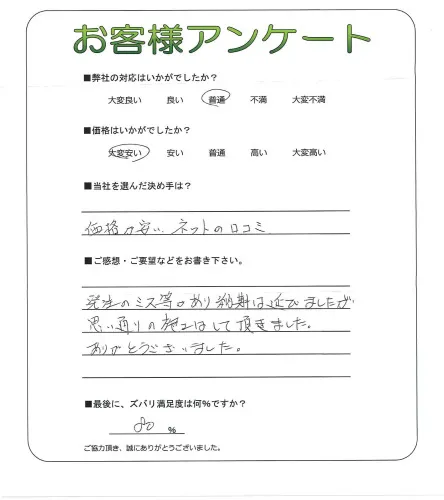 お客様アンケート
■弊社の対応はいかがでしたか?
大変良い 良い 普通 不満 大変不満
■価格はいかがでしたか?
大変安い 安い 普通 高い 大変高い
■当社を選んだ決め手は?
価格が安い、ネットの口コミ
■ご感想・ご要望などをお書き下さい。
発注のミス等あり納期は延びましたが
思い通りの施工はして頂きました。
ありがとうございました。
■最後に、ズバリ満足度は何%ですか?
80 %
ご協力頂き、誠にありがとうございました。